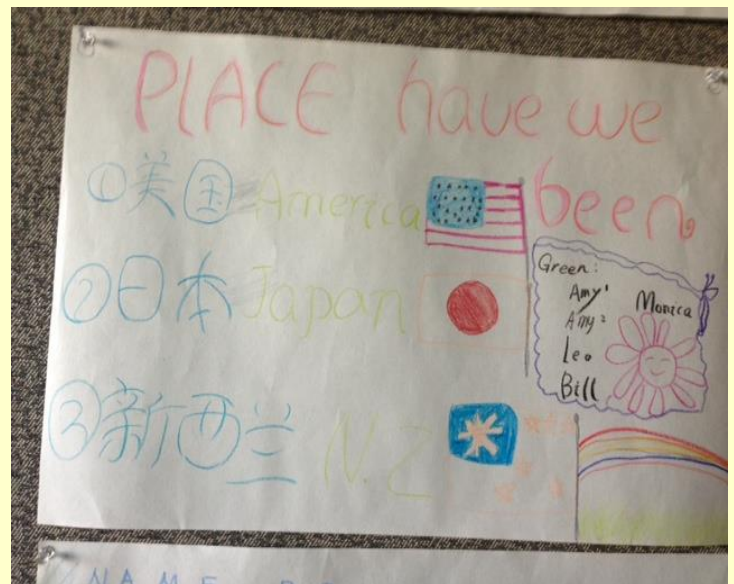 PLACE have we
been
①美国 America
②日本 Japan
③新西兰 N.Z
Green:
Amy'
Amy²
Monica
Leo
Bill
NAME